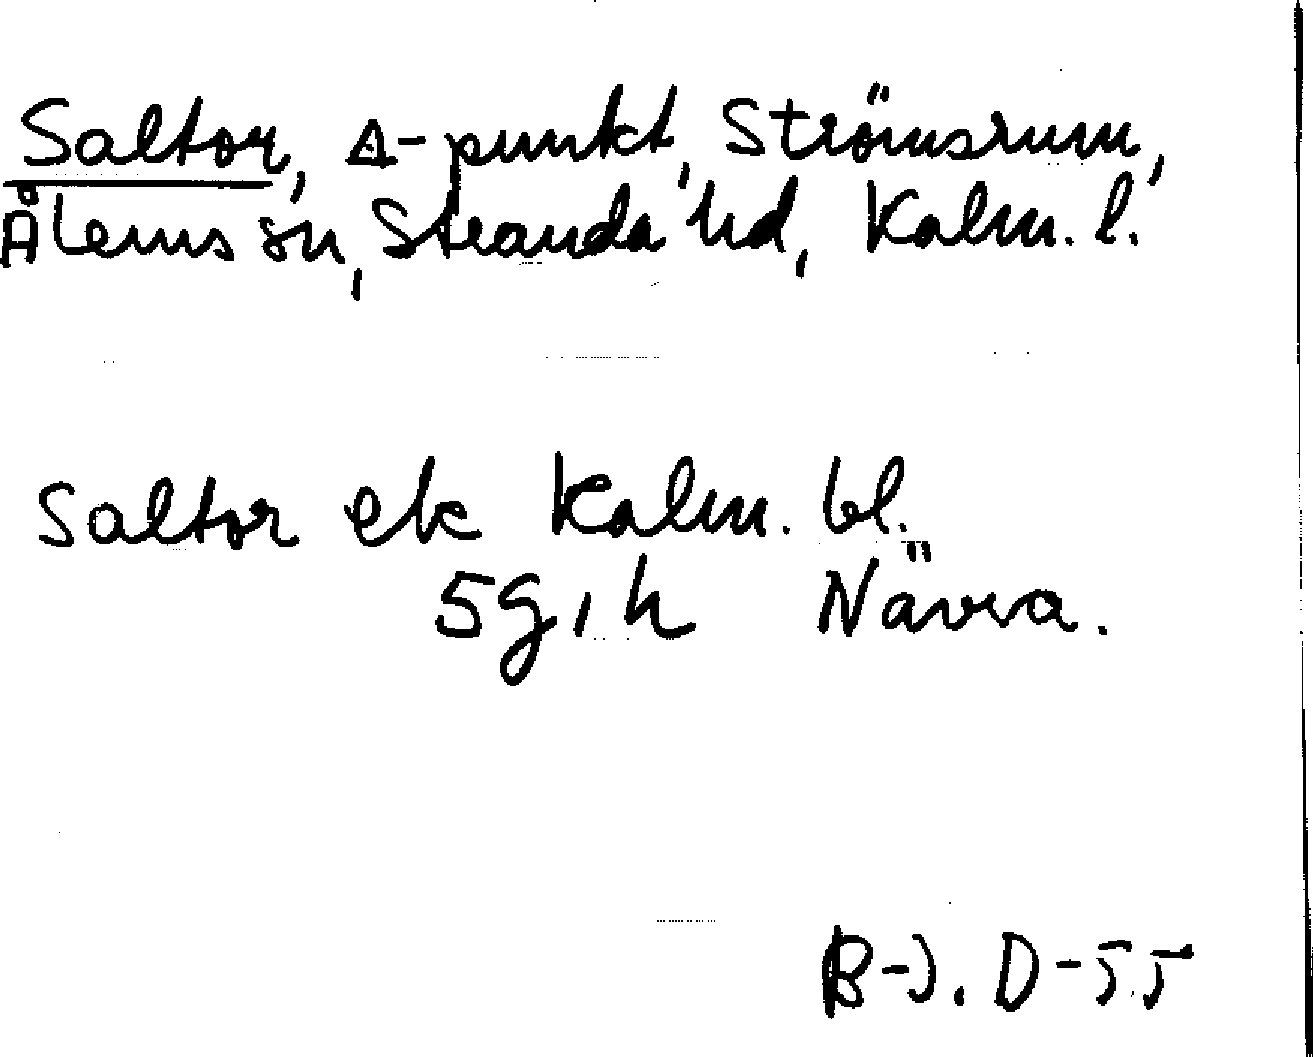 Saltor, Δ-punkt, Strömsrum,
Ålems sn, Stranda hd, Kalm. l.
Saltor ek Kalm. bl.
5g, h Nävra.
B-J. D-55